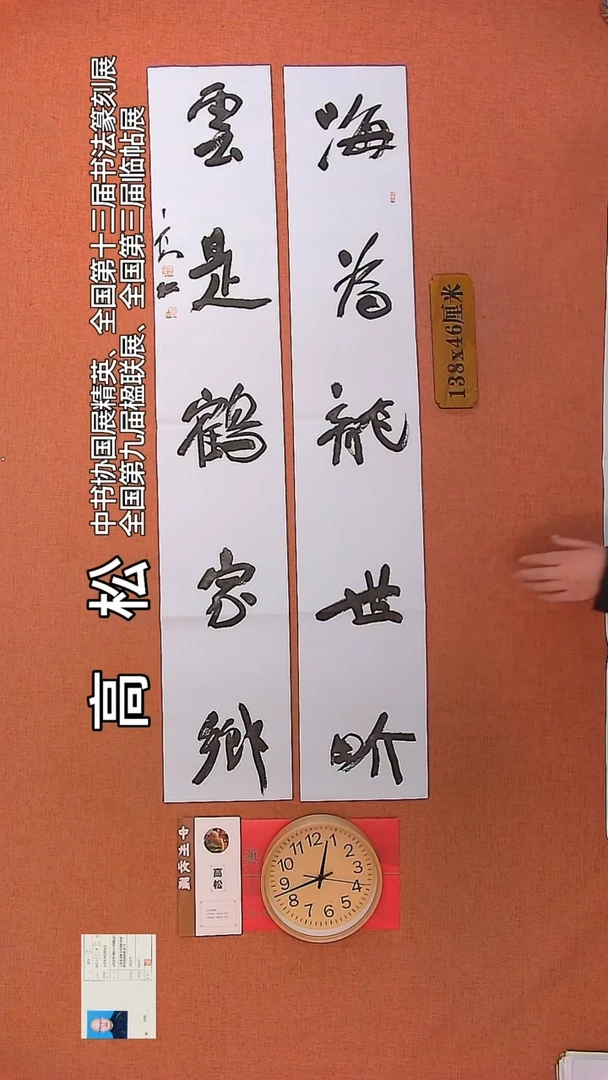 海为龙世界
雲是鹤家鄉
高松
中书协国展精英、全国第十三届书法篆刻展
全国第九届楹联展、全国第三届临帖展
138x46厘米
高松
12
1
2
3
4
5
6
7
8
9
10
11